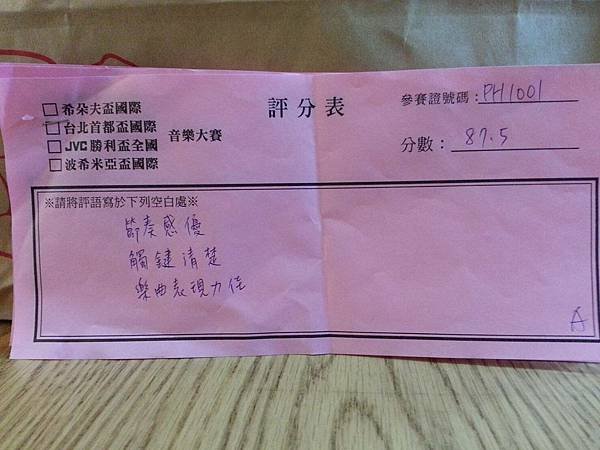 □希朵夫盃國際
□台北首都盃國際
□JVC勝利盃全國
□波希米亞盃國際
音樂大賽
評分表
參賽證號碼：PH1001
分數：87.5
※請將評語寫於下列空白處※
節奏感優
觸鍵清楚
樂曲表現力佳
A